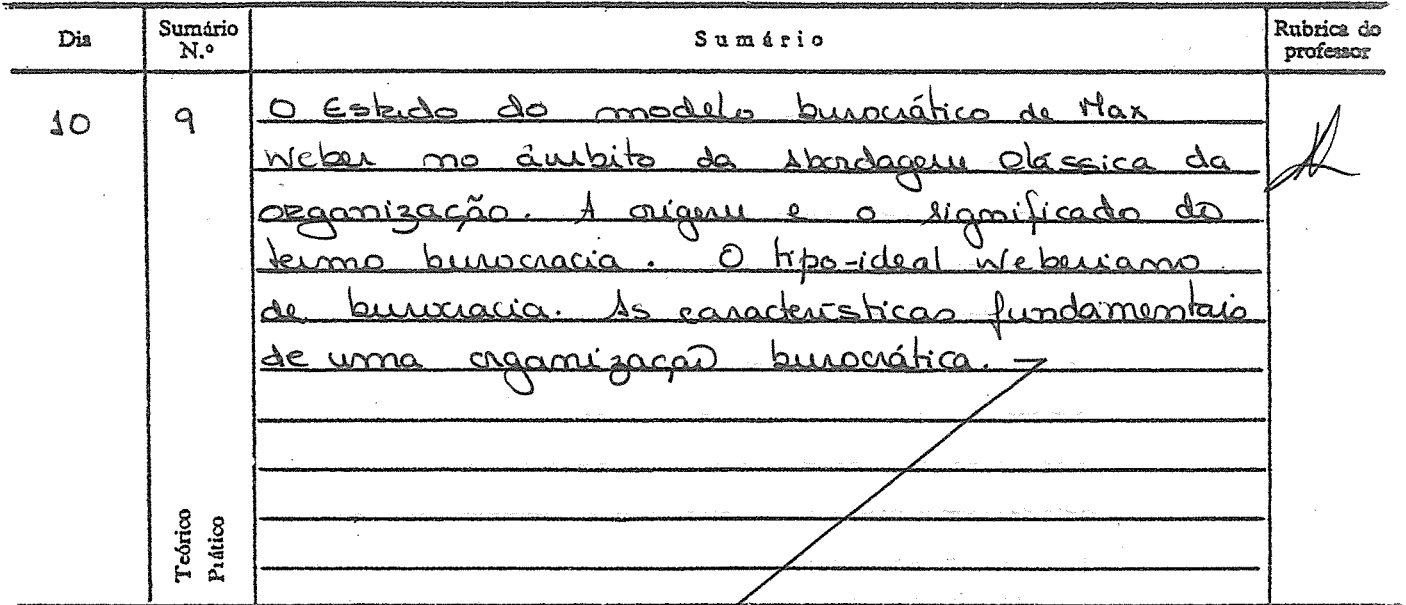 Dia
Sumário N.º
Sumário
Rubrica do professor
10
9
O Estudo do modelo burocrático de Max
Weber no âmbito da Abordagem Clássica da
organização. A origem e o significado do
termo burocracia. O tipo-ideal Weberiano
de burocracia. As características fundamentais
de uma organização burocrática.
Teórico
Prático